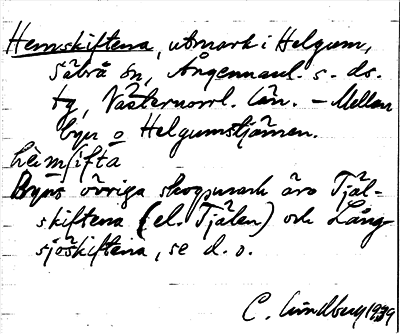 Hemskiftena, utmark i Helgum,
Säbrå sn, Ångermanl. s. ds.
tg, Västernorrl. län. – Mellan
byn o Helgumstjärnen.
hèmʃifta
Byns övriga skogsmark äro Tjäl-
skiftena (el. Tjälen) och Lång-
sjöskiftena, se d. o.
C. Lindberg 1939